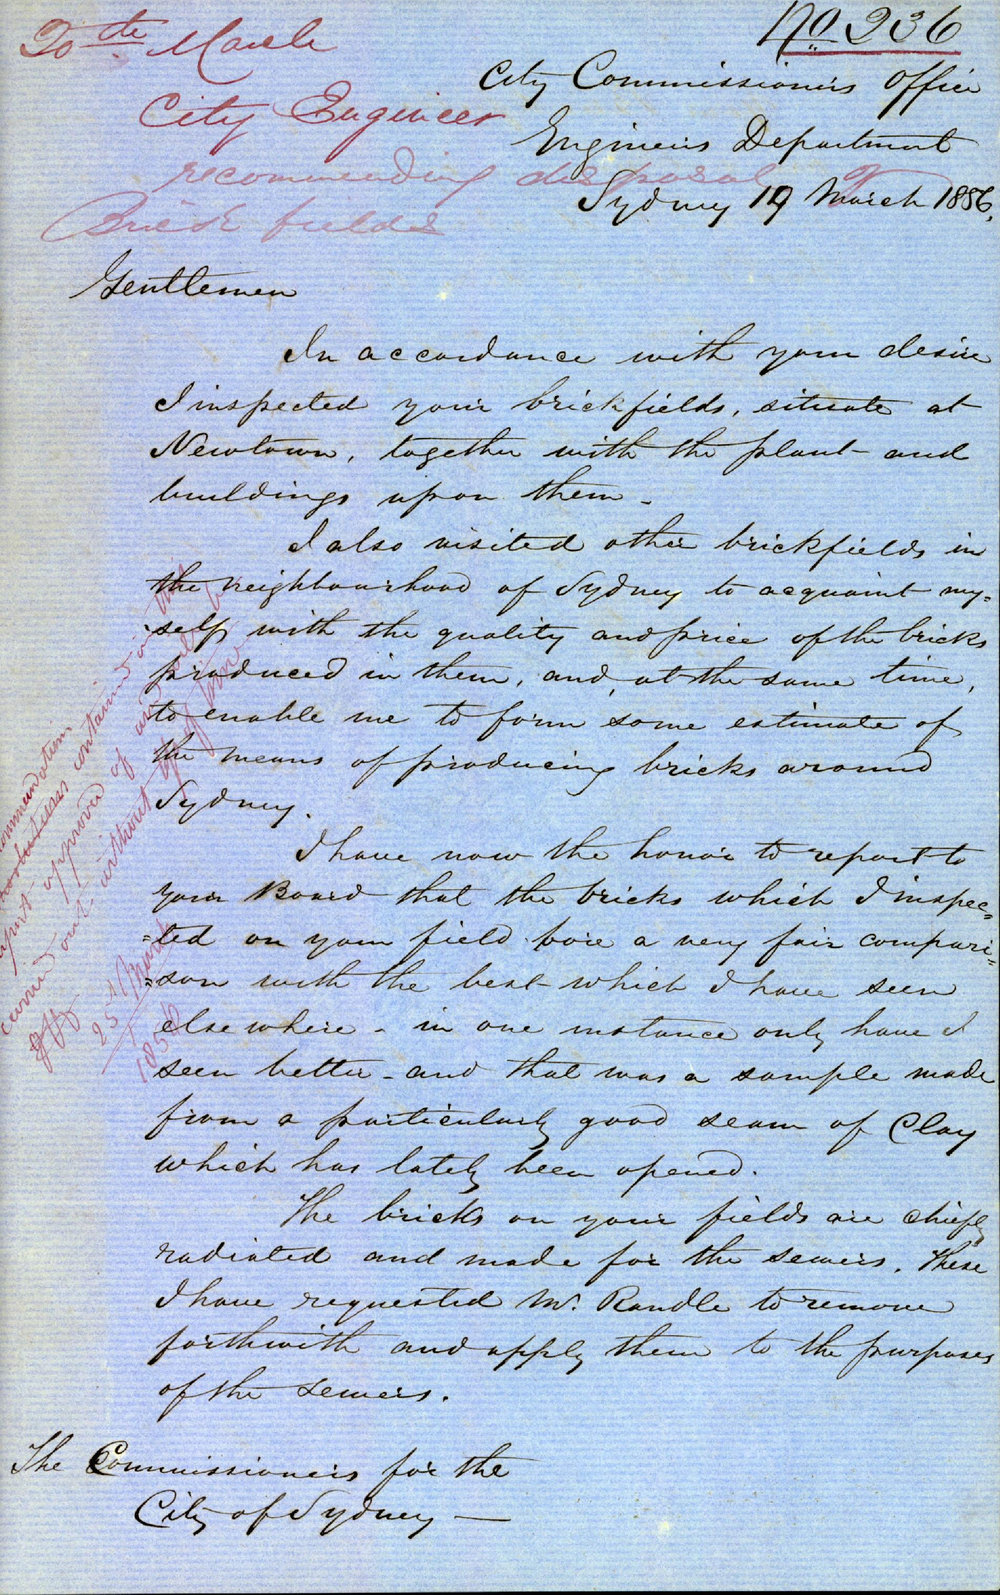 No. 236
20th March
City Engineer
recommending disposal of
Brick fields
City Commissioners Office
Engineers Department
Sydney 19 March 1856,
Gentlemen
In accordance with your desire
I inspected your brickfields, situate at
Newtown, together with the plant and
buildings upon them -
I also visited other brickfields in
the neighbourhood of Sydney to acquaint my=
=self with the quality and price of the bricks
produced in them, and, at the same time,
to enable me to form some estimate of
the means of producing bricks around
Sydney.
I have now the honor to report to
your Board that the bricks which I inspec=
=ted on your field bore a very fair compari=
=son with the best which I have seen
elsewhere - in one instance only have I
seen better - and that was a sample made
from a particularly good seam of Clay
which has lately been opened.
The bricks on your fields are chiefly
radiated and made for the sewers. These
I have requested Mr. Randle to remove
forthwith and apply them to the purposes
of the sewers.
The Commissioners for the
City of Sydney —
contained in this
approved of and
carried out without
25th March
1856